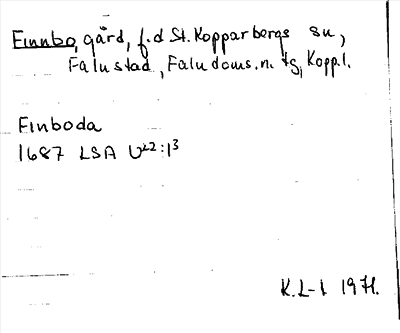 Finnbo, gård, f.d St. Kopparbergs sn,
Falu stad, Falu doms.n. tg, Kopp.l.
Finboda
1687 LSA U22:1³
K.L-l 1971.